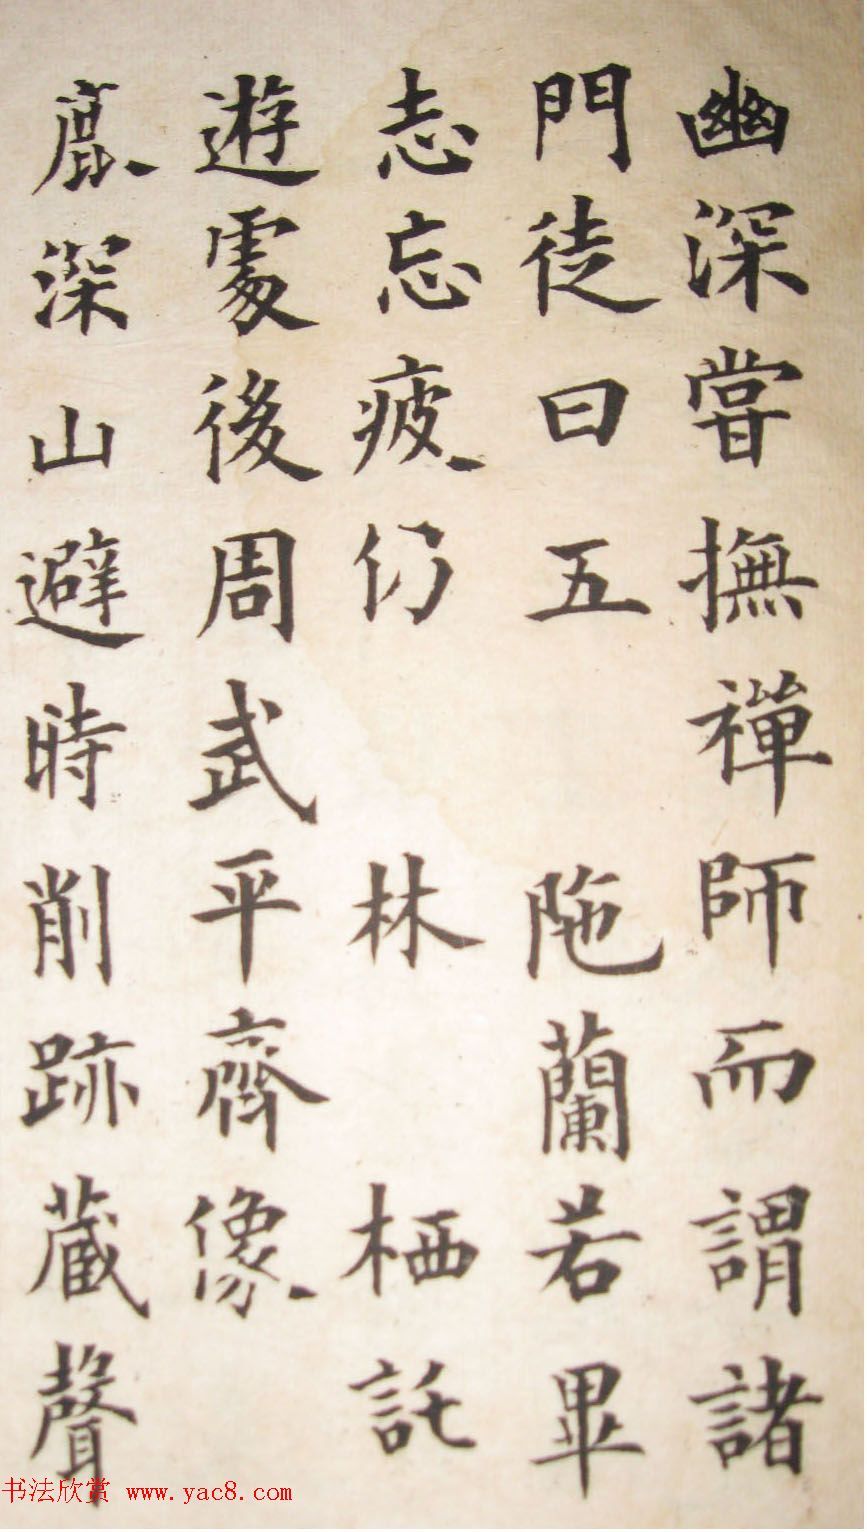 幽深嘗撫禪師而謂諸
門徒曰五陁蘭若畢
志忘疲仍林栖託
遊處後周武平齊像
麁深山避時削跡藏聲
书法欣赏 www.yac8.com